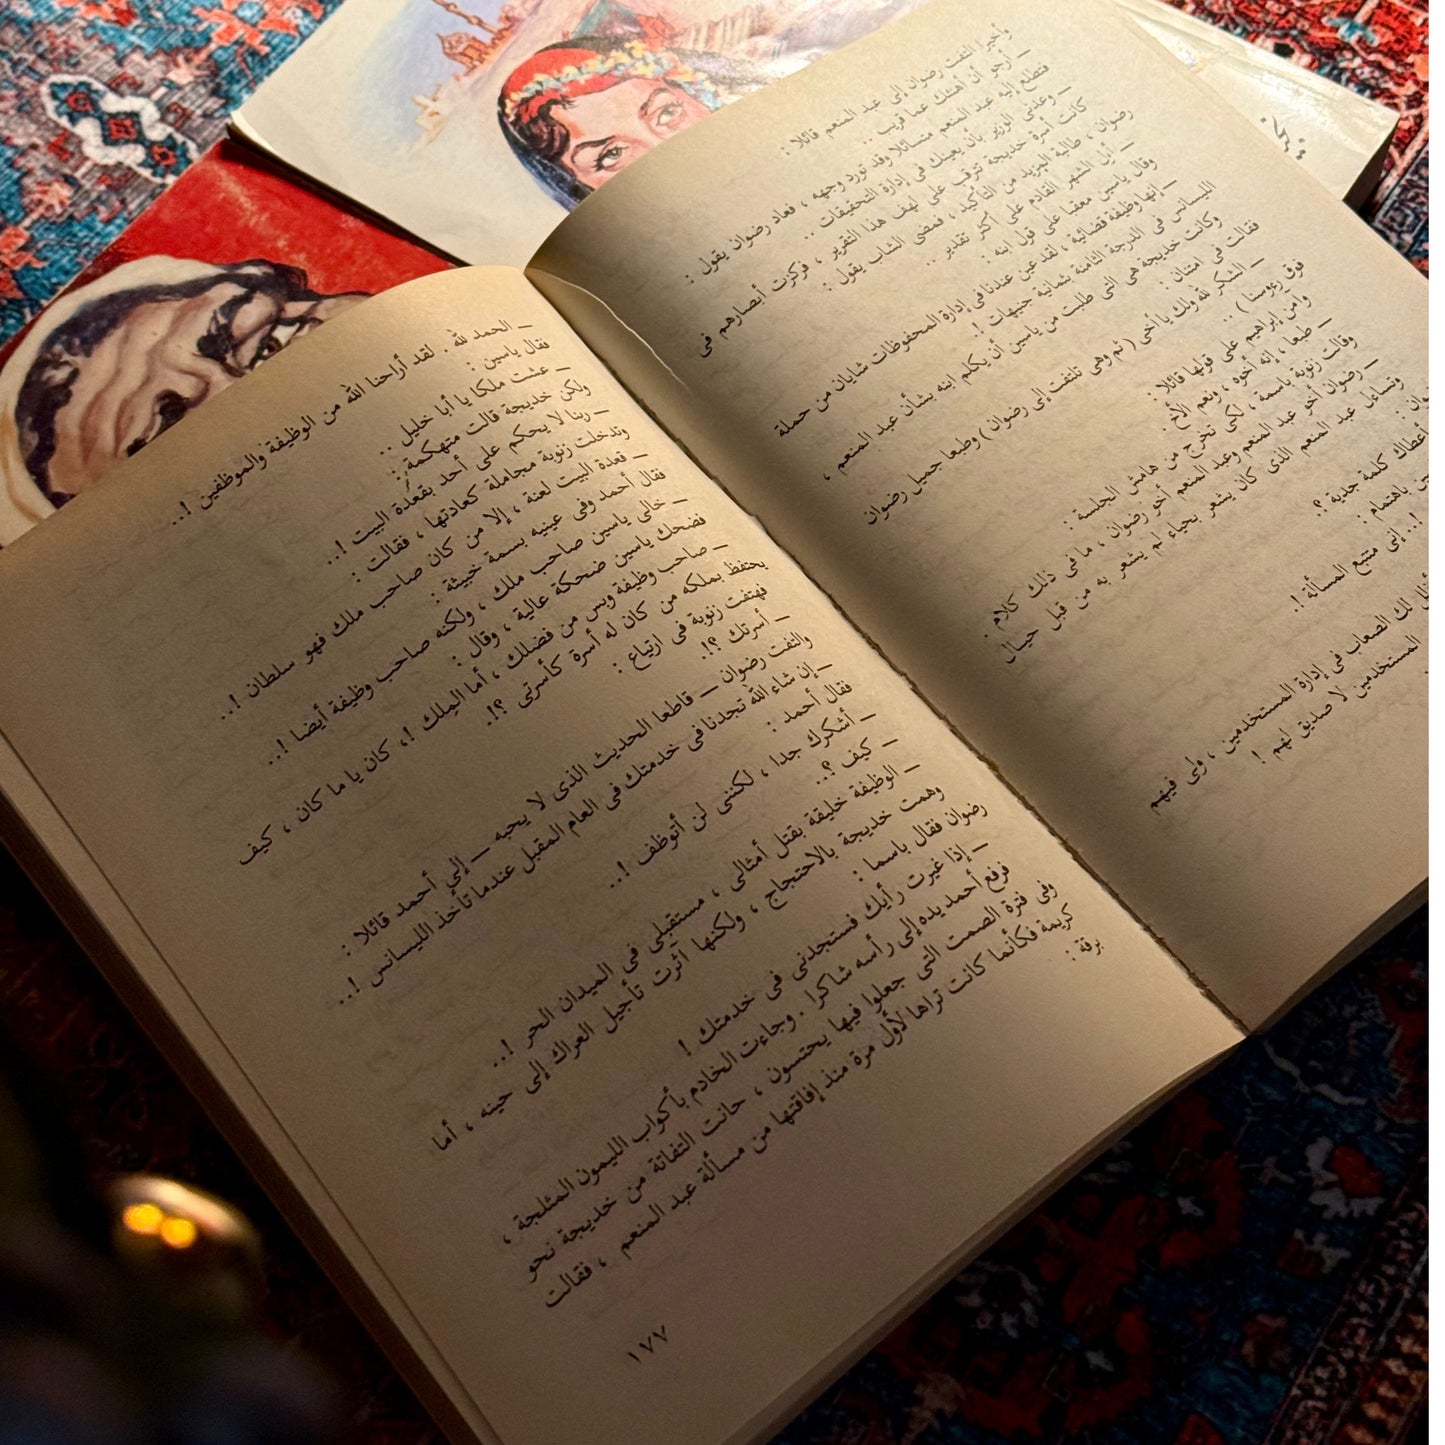 وأخيرا التفت رضوان إلى عبد المنعم قائلا :
ـ أرجو أن أهنئك عما قريب ..
فتطلع إليه عبد المنعم متسائلا وقد تورد وجهه ، فعاد رضوان يقول :
ـ وعدنى الوزير بأن يعينك فى إدارة التحقيقات ..
كانت أسرة خديجة تترقب على لهف هذا التقرير ، فركزت أبصارهم فى
رضوان ، طالبة المزيد من التأكيد ، فمضى الشاب يقول :
ـ أول الشهر القادم على أكثر تقدير ..
وقال ياسين معقبا على قول ابنه :
ـ إنها وظيفة قضائية ، لقد عين عندنا فى إدارة المحفوظات شابان من حملة
الليسانس فى الدرجة الثامنة بثمانية جنيهات !.
وكانت خديجة هى التى طلبت من ياسين أن يكلم ابنه بشأن عبد المنعم ،
فقالت فى امتنان :
ـ الشكر لله ولك يا أخى ( ثم وهى تلتفت إلى رضوان ) وطبعا جميل رضوان
فوق رءوسنا ) ..
وأمن إبراهيم على قولها قائلا :
ـ طبعا ، إنه أخوه ، ونعم الأخ.
وقالت زنوبة باسمة ، لكى تخرج من هامش الجلسة :
ـ رضوان أخو عبد المنعم وعبد المنعم أخو رضوان ، ما فى ذلك كلام .
وتساءل عبد المنعم الذى كان يشعر بحياء لم يشعر به من قبل حيال
أعطاك كلمة جدية ؟.
باهتمام :
!.. إنى متتبع المسألة !.
لك الصعاب فى إدارة المستخدمين ، ولى فيهم
المستخدمين لا صديق لهم !
ـ الحمد لله . لقد أراحنا الله من الوظيفة والموظفين !..
فقال ياسين :
ـ عشت ملكا يا أبا خليل ..
ولكن خديجة قالت متهكمة :
ـ ربنا لا يحكم على أحد بقعدة البيت !..
وتدخلت زنوبة مجاملة كعادتها ، فقالت :
ـ قعدة البيت لعنة ، إلا من كان صاحب ملك فهو سلطان !..
فقال أحمد وفى عينيه بسمة خبيثة :
ـ خالى ياسين صاحب ملك ، ولكنه صاحب وظيفة أيضا !..
فضحك ياسين ضحكة عالية ، وقال :
ـ صاحب وظيفة وبس من فضلك ، أما الملك !، كان يا ما كان ، كيف
يحتفظ بملكه من كان له أسرة كأسرتى ؟!.
فهتفت زنوبة فى ارتياع :
ـ أسرتك ؟!.
والتفت رضوان ـ قاطعا الحديث الذى لا يحبه ـ إلى أحمد قائلا :
ـ إن شاء الله تجدنا فى خدمتك فى العام المقبل عندما تأخذ الليسانس !..
فقال أحمد :
ـ أشكرك جدا ، لكننى لن أتوظف !..
ـ كيف ؟..
ـ الوظيفة خليقة بقتل أمثالى ، مستقبلى فى الميدان الحر !..
وهمت خديجة بالاحتجاج ، ولكنها آثرت تأجيل العراك إلى حينه ، أما
رضوان فقال باسما :
ـ إذا غيرت رأيك فستجدنى فى خدمتك !
فرفع أحمد يده إلى رأسه شاكرا . وجاءت الخادم بأكواب الليمون المثلجة ،
وفى فترة الصمت التى جعلوا فيها يحتسون ، حانت التفاتة من خديجة نحو
كريمة فكأنما كانت تراها لأول مرة منذ إفاقتها من مسألة عبد المنعم ، فقالت
برقة :
١٧٧